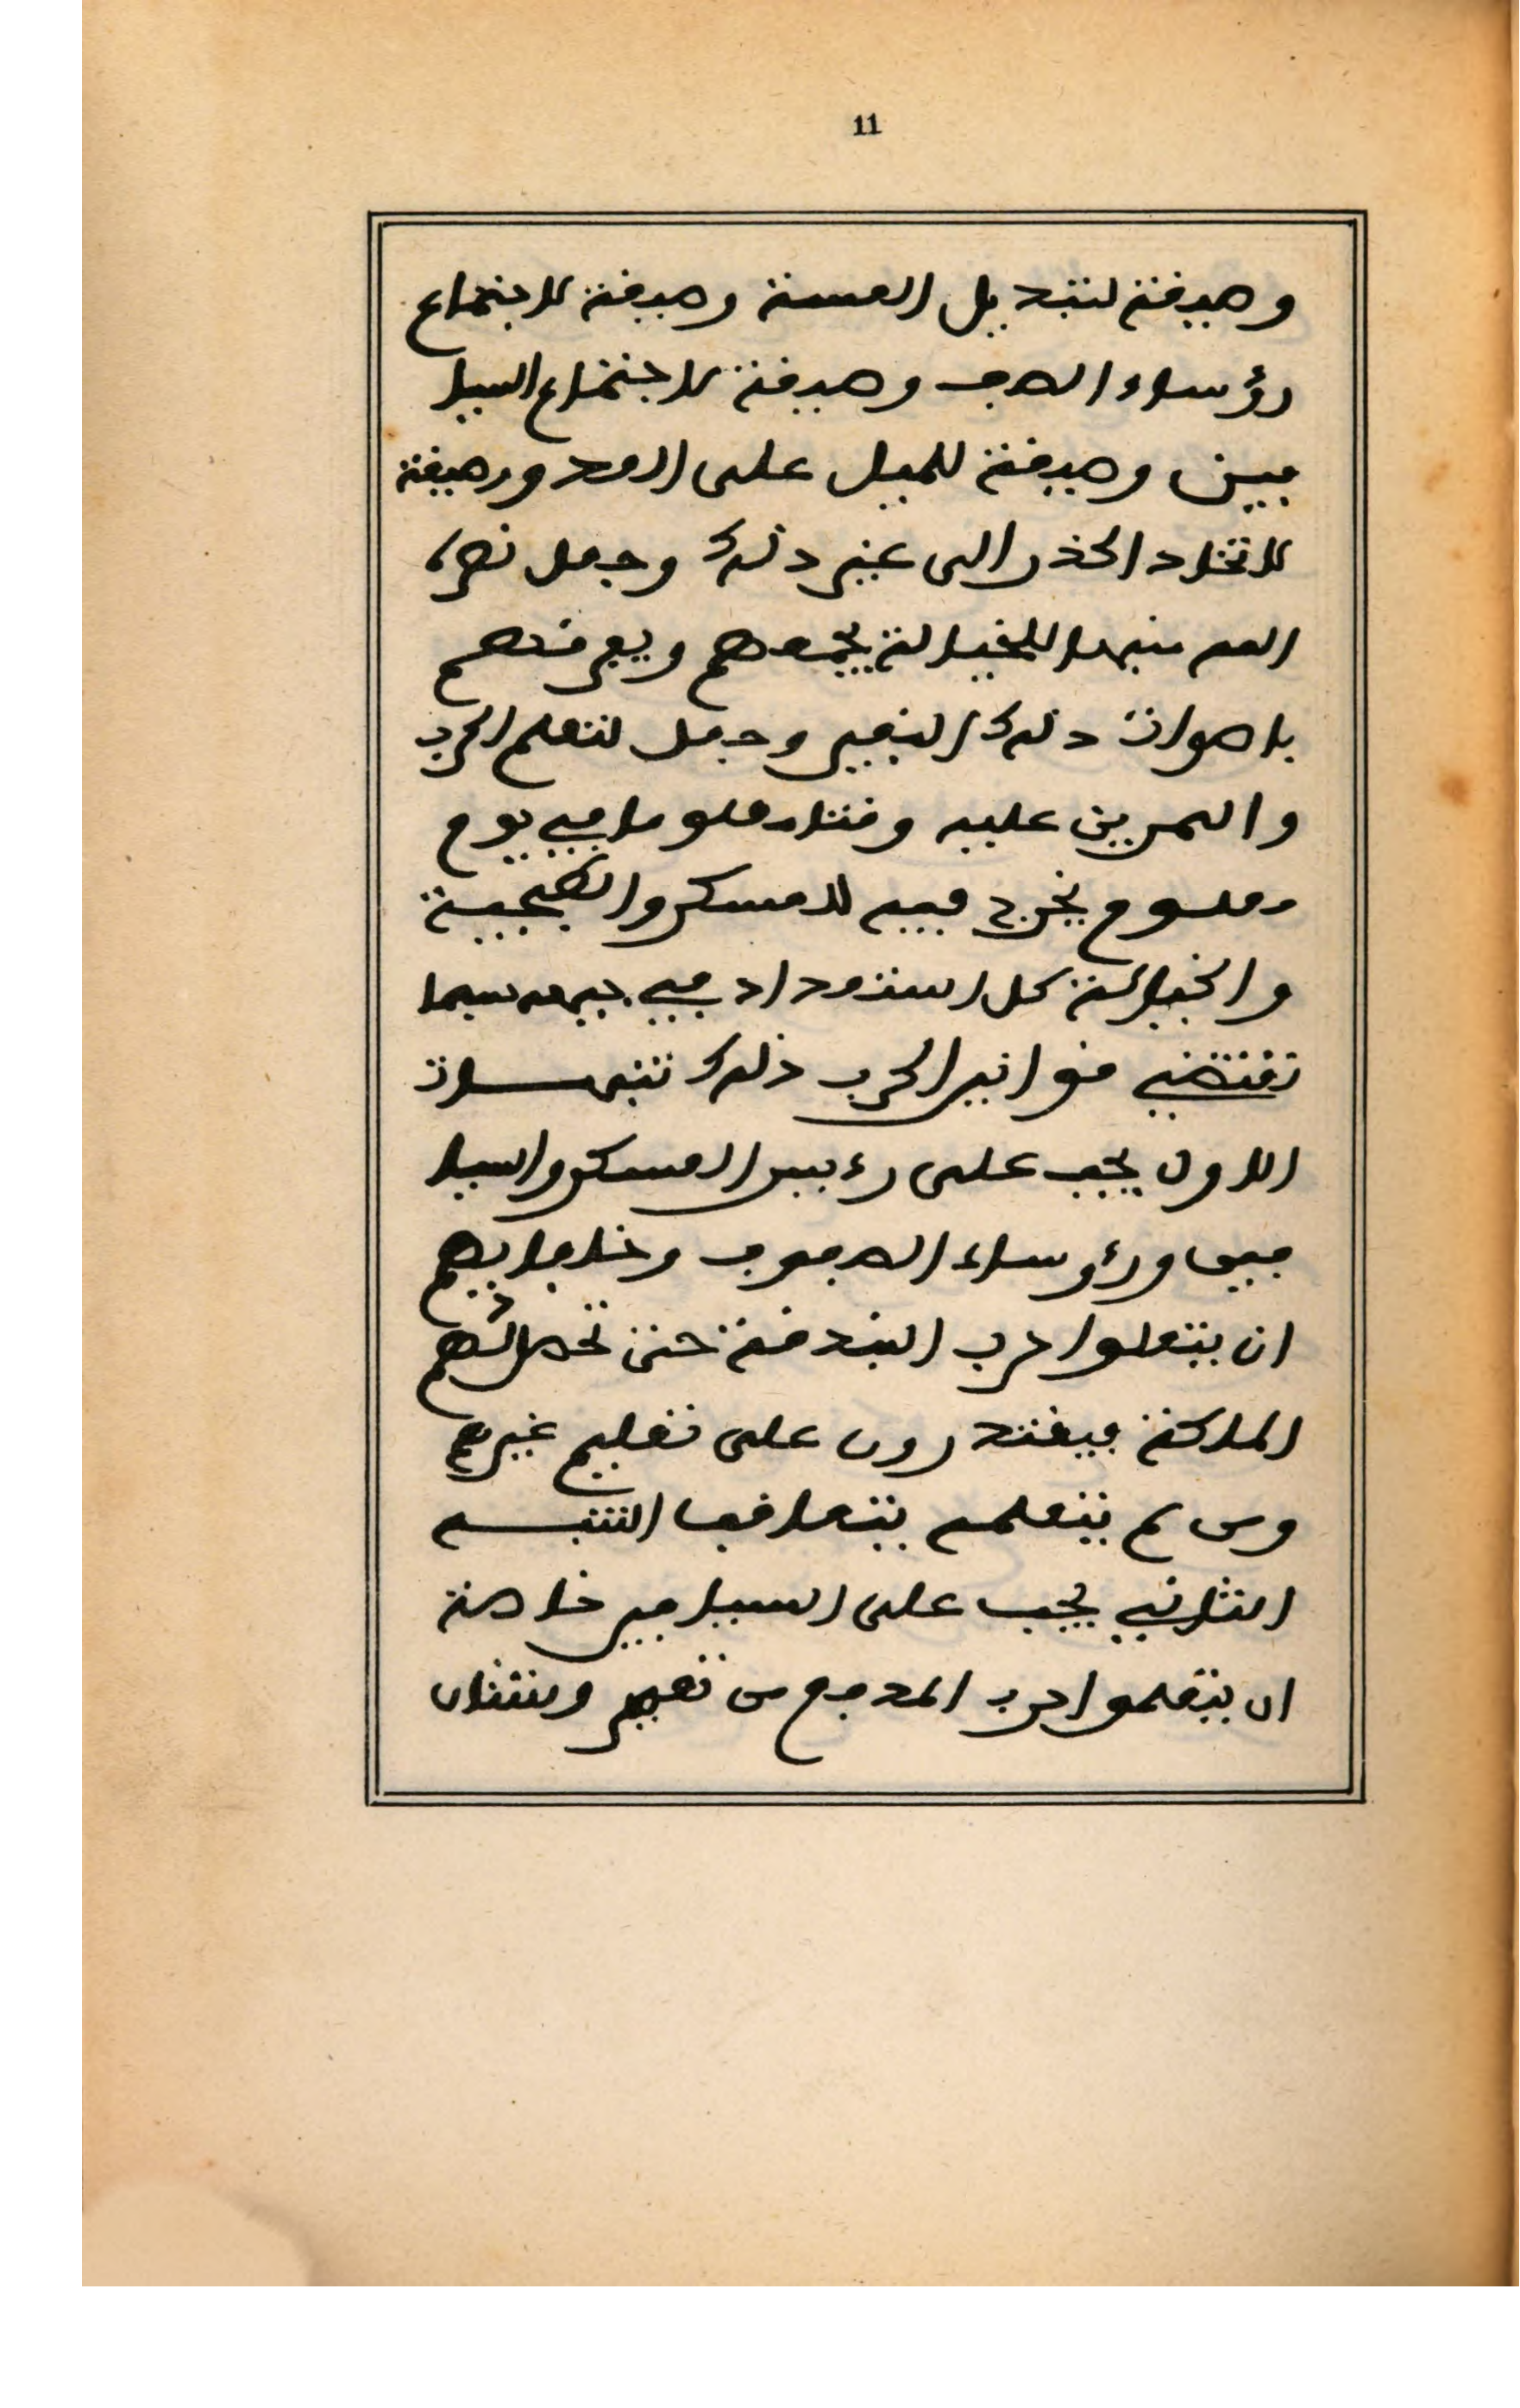 11
وصيفة لتبديل العسة وصيفة للاجتماع
رؤساء الصف وصيفة للاجتماع السيا
فين وصيفة للميل على العدو وصيفة
للاتخاد الحذر الى غير دلك وجعل نصره
الله للخيالة يجمعهم ويعرفهم
باصوات دلك النفير وجعل لتعلم الحرب
والتمرين عليه وقتا معلوما في يوم
معلوم يخرج فيه العسكر والطبجية
والخيالة كل استعداد فيه سيما
تقتضي قوانين الحرب ذلك تنبيهات
الاول يجب على رءيس العسكر والسيا
فين ورؤساء الصفوف وخلفايهم
ان يتعلموا حرب البندقة حتى تحصل لهم
الملاكة فيقتدرون على تعليم غيرهم
ومن لم يتعلمه يتعاقب التنبيه
الثاني يجب على السيافين خاصة
ان يتعلموا حرب المدفع من تعمير ونيشان